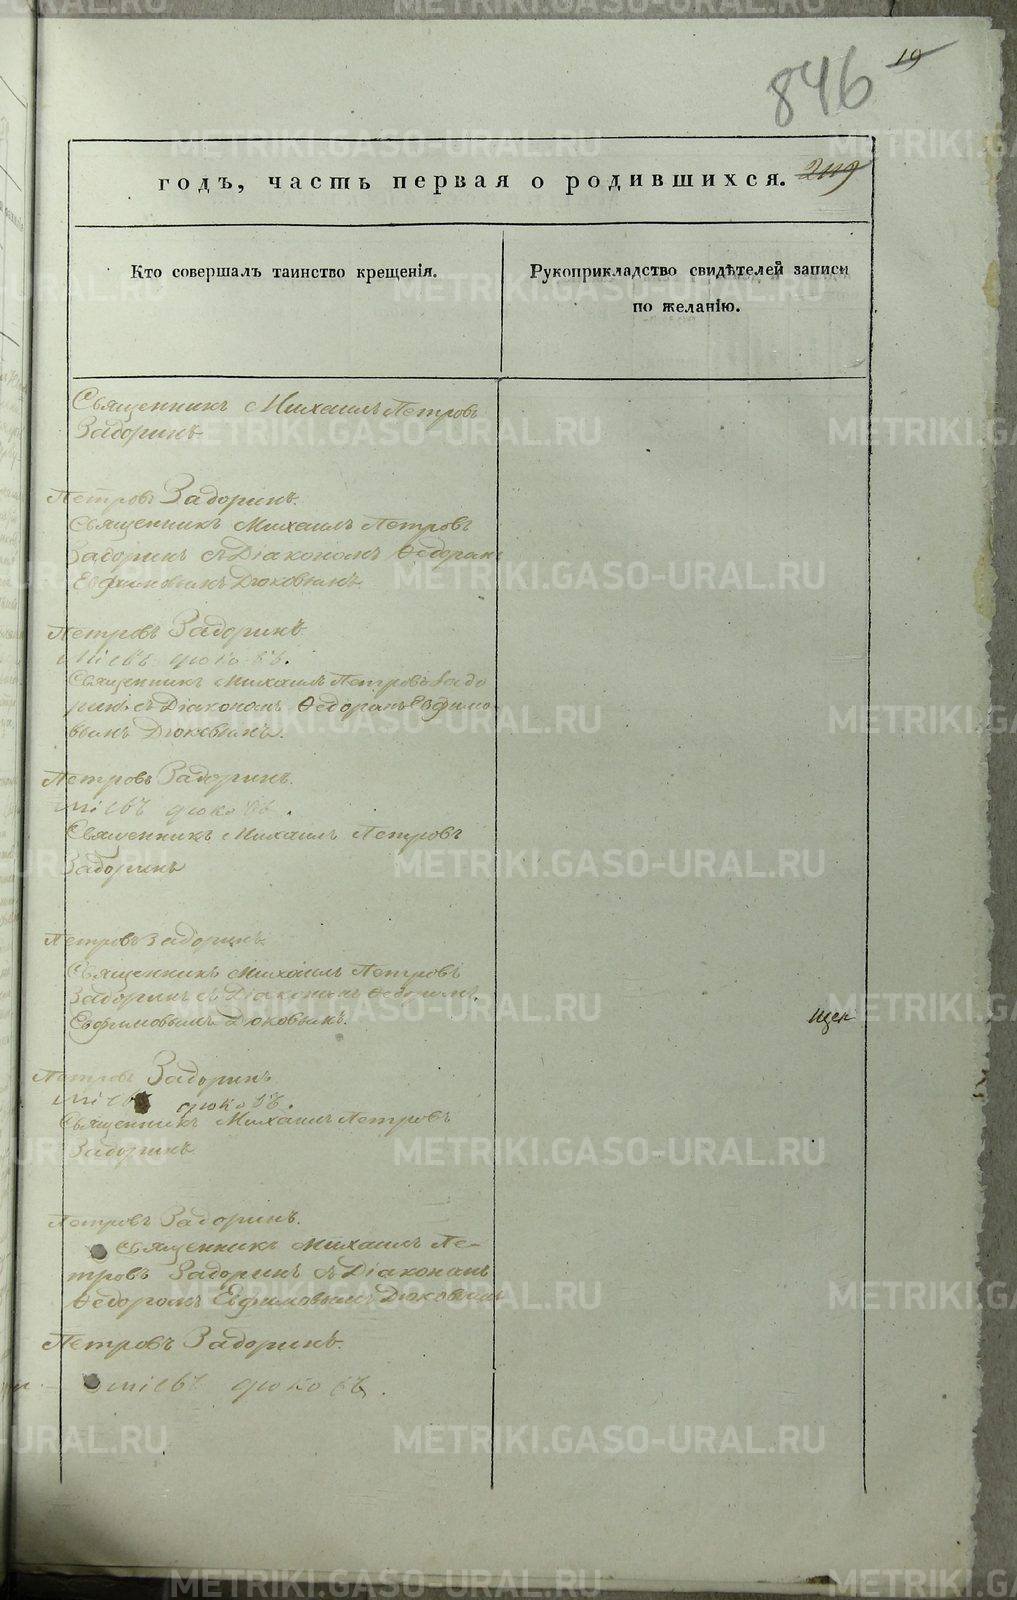 846 19
годъ, часть первая о родившихся. 219
Кто совершалъ таинство крещенія.
Рукоприкладство свидѣтелей записи
по желанію.
Священникъ Михаилъ Петровъ
Задоринъ
Петровъ Задоринъ.
Священникъ Михаилъ Петровъ
Задоринъ съ Діакономъ Ѳедоромъ
Евфимовымъ Дюковымъ.
Петровъ Задоринъ
дюковъ.
Священникъ Михаилъ Петровъ Задо
ринъ съ Діакономъ Ѳедоромъ Евфимо
вымъ Дюковымъ.
Петровъ Задоринъ.
дюковъ.
Священникъ Михаилъ Петровъ
Задоринъ
Петровъ Задоринъ.
Священникъ Михаилъ Петровъ
Задоринъ съ Діакономъ Ѳедоромъ
Евфимовымъ Дюковымъ.
Петровъ Задоринъ
дюковъ.
Священникъ Михаилъ Петровъ
Задоринъ
Петровъ Задоринъ.
Священникъ Михаилъ Пе-
тровъ Задоринъ съ Діакономъ
Ѳедоромъ Евфимовымъ Дюковымъ
Петровъ Задоринъ.
дюковъ.
METRIKI.GASO-URAL.RU